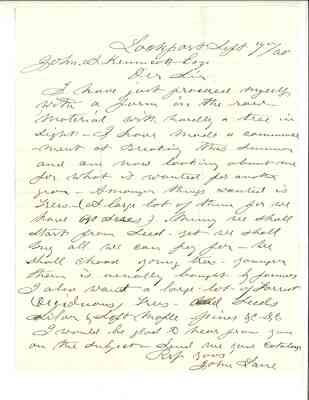 Lockport Sept 7th/50
John. A Kennicott Esq
Der Sir
I have just procured myself
with a farm in the raw
material with hardly a tree in
sight - I have made a commence
ment at Breaking this Summer
and am now looking about me
for what is wanted for another
year - Amongst things wanted is
Trees (A large lot of them for we
have 90 acres) Many we shall
start from Seed - yet we shall
buy all we can pay for - We
shall choose young trees - younger
than is usually bought by farmers
I also want a large lot of Forrest
Trees - Seeds
Silver & Soft Maple Pines &c &c
I would be glad to hear from you
on the subject - Send me your Catalogue
Resp yours
John Lane